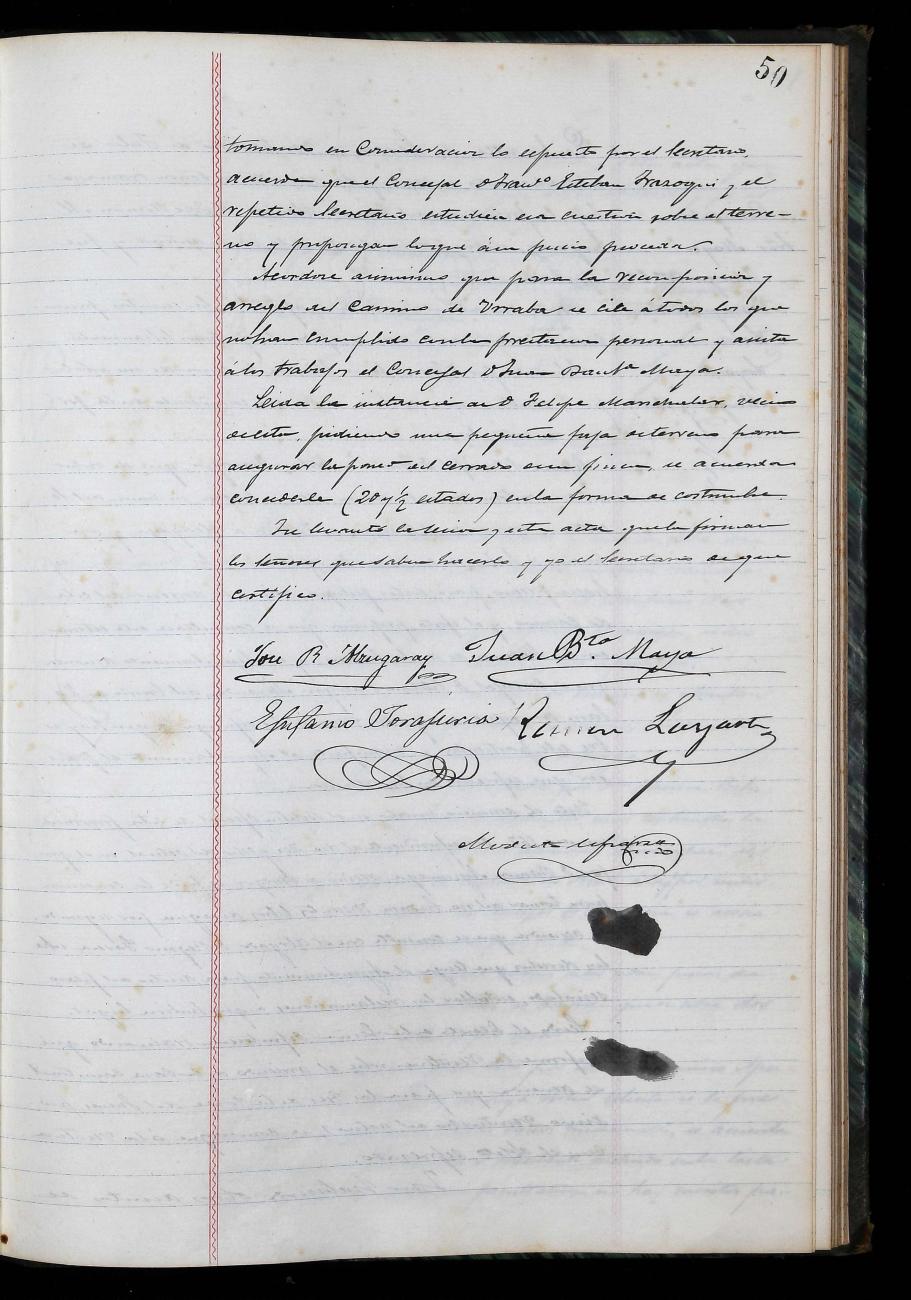 50
tomando en Consideracion lo espuesto por el Secretario,
acuerda que el Concejal D Franco Esteban Irazoqui y el
repetido Secretario estudien esa cuestion sobre el terre-
no y propongan lo que á su juicio proceda.
Acordose asimismo que para la recomposicion y
arreglo del Camino de Urraba se cite á todos los que
no han cumplido con la prestacion personal y asista
á los trabajos el Concejal D Juan Bauta Maya.
Leida la instancia de D Felipe Marichalar, vecino
de esta, pidiendo una pequeña faja de terreno para
asegurar la pared del cerrado en su finca, se acuerda
concederle (20 y ½ estados) en la forma de costumbre.
Se levantó la sesion y esta acta que la firman
los Señores que saben hacerlo y yo el Secretario de que
certifico.
José R Abrugaray Juan Bta. Maya
Estefanio Ramon Loyarte
Modesto